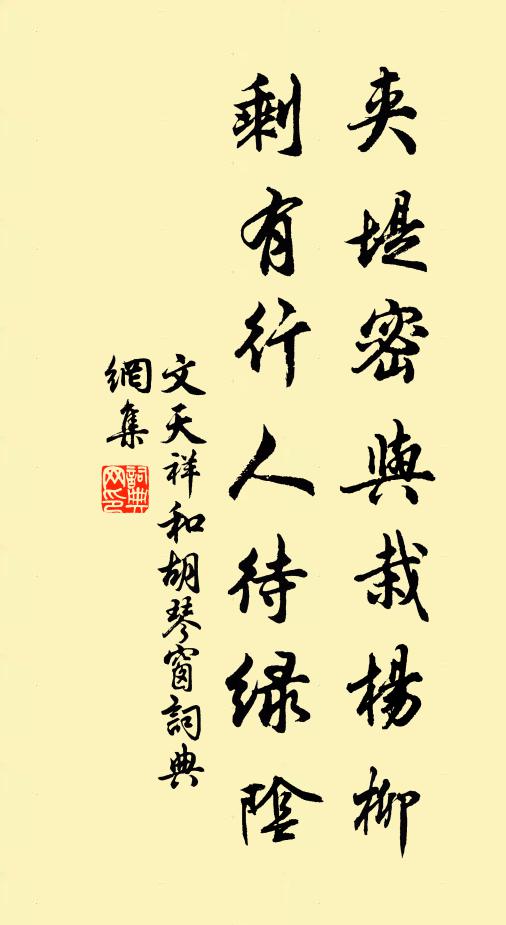 夹堤密與栽楊柳
剩有行人待绿陰
文天祥和胡琴窗詞典
網集
詞典網印